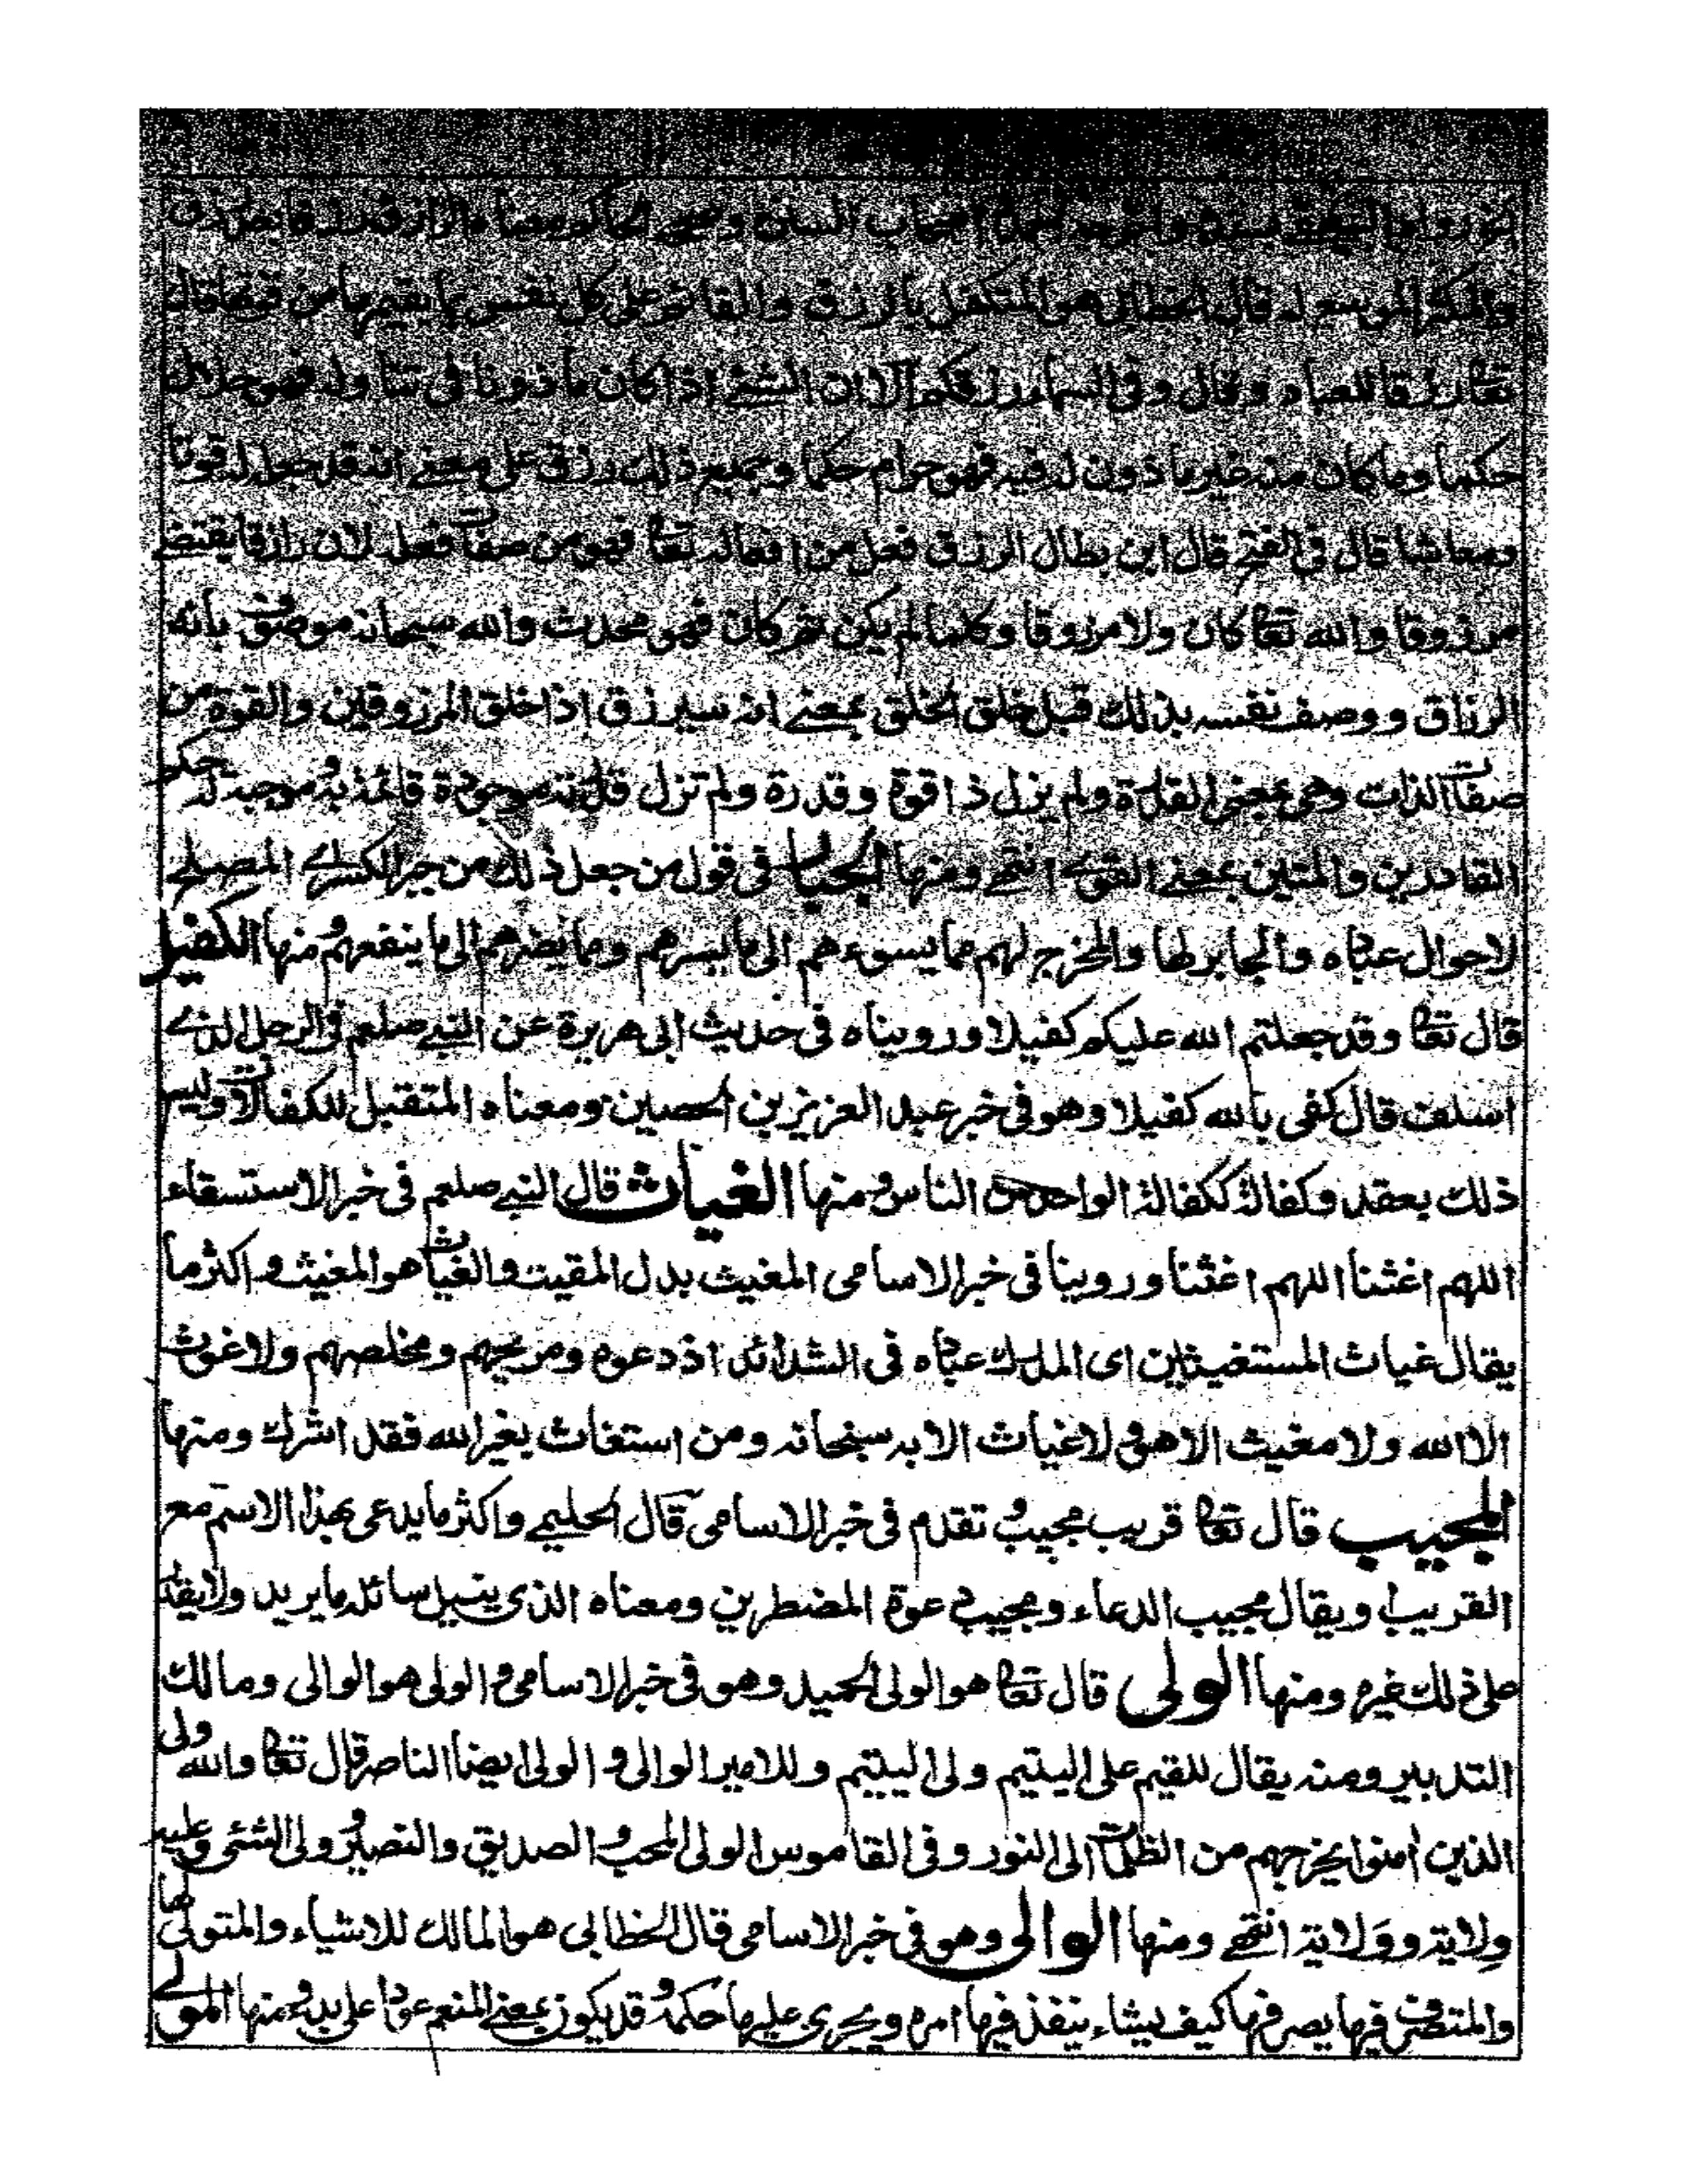 اصحاب السنن وصححه الحاكم ومعناه الرازق رزقا بعد رزق
والمكثر الموسع له قال الخطابي هو المتكفل بالرزق والقائم على كل نفس بما يقيمها من قوتها قال
تعا رزقا للعباد وقال وفى السماء رزقكم الا ان الشئ اذا كان ماذونا فى تناوله فهو حلال
حكما وما كان من غير ماذون له فيه فهو حرام حكما وجميع ذلك رزق على معنے انه قد جعله له قوتا
ومعاشا قال فى الفتح قال ابن بطال الرزق فعل من افعاله تعا فهو من صفات فعله لان رازقا يقتضے
مرزوقا والله تعا كان ولا مرزوقا وكلما لم يكن ثم كان فهو محدث والله سبحانه موصوف بانه
الرزاق ووصف نفسه بذلك قبل خلق الخلق بمعنے انه سيرزق اذا خلق المرزوقين والقوة من
صفات الذات وهى بمعنى القدرة ولم يزل ذا قوة وقدرة ولم تزل قدرته موجودة قائمة به موجبة له حكم
القادرين والمتين بمعنے القوے انتهے ومنها الجبار فى قول من جعل ذلك من جبر الكسر اے المصلح
لاحوال عباده والجابر لها والمخرج لهم مما يسوءهم الى ما يسرهم ومما يضرهم الى ما ينفعهم ومنها الكفيل
قال تعا وقد جعلتم الله عليكم كفيلا وروينا ه فى حديث ابى هريرة عن النبے صلعم فى الرجل الذے
اسلف قال كفى بالله كفيلا وهو فى خبر عبد العزيز بن الحصين ومعناه المتقبل للكفالات وليس
ذلك بعقد وكفالة ككفالة الواحد من الناس ومنها الغياث قال النبے صلعم فى خبر الاستسقاء
اللهم اغثنا اللهم اغثنا وروينا فى خبر الاسامى المغيث بدل المقيت والغياث هو المغيث واكثر ما
يقال غياث المستغيثين اى المدرك عباده فى الشدائد اذ دعوه ومريحهم ومخلصهم ولا غوث
الا الله ولا مغيث الا هو ولا غياث الا به سبحانه ومن استغاث بغير الله فقد اشرك ومنها
المجيب قال تعا قريب مجيب وتقدم فى خبر الاسامى قال الحليمے واكثر ما يدعى بهذا الاسم مع
القريب ويقال مجيب الدعاء ومجيب دعوة المضطرين ومعناه الذى ينيل سائله ما يريد ولا يقدر
على ذلك غيره ومنها الولى قال تعا هو الولى الحميد وهو فى خبر الاسامى والولى هو الوالى ومالك
التدبير ومنه يقال للقيم على اليتيم ولى اليتيم وللامير الوالى والولى ايضا الناصر قال تعا والله ولى
الذين امنوا يخرجهم من الظلمات الى النور وفى القاموس الولى المحب والصديق والنصير وولى الشئ وعليه
ولاية وولاية انتهے ومنها الوالى وهو فى خبر الاسامى قال الخطابى هو المالك للاشياء والمتولى لها
والمتصرف فيها يصرفها كيف يشاء ينفذ فيها امره ويجرى عليها حكمه وقد يكون بمعنے المنعم عودا على بدء ومنها المولے